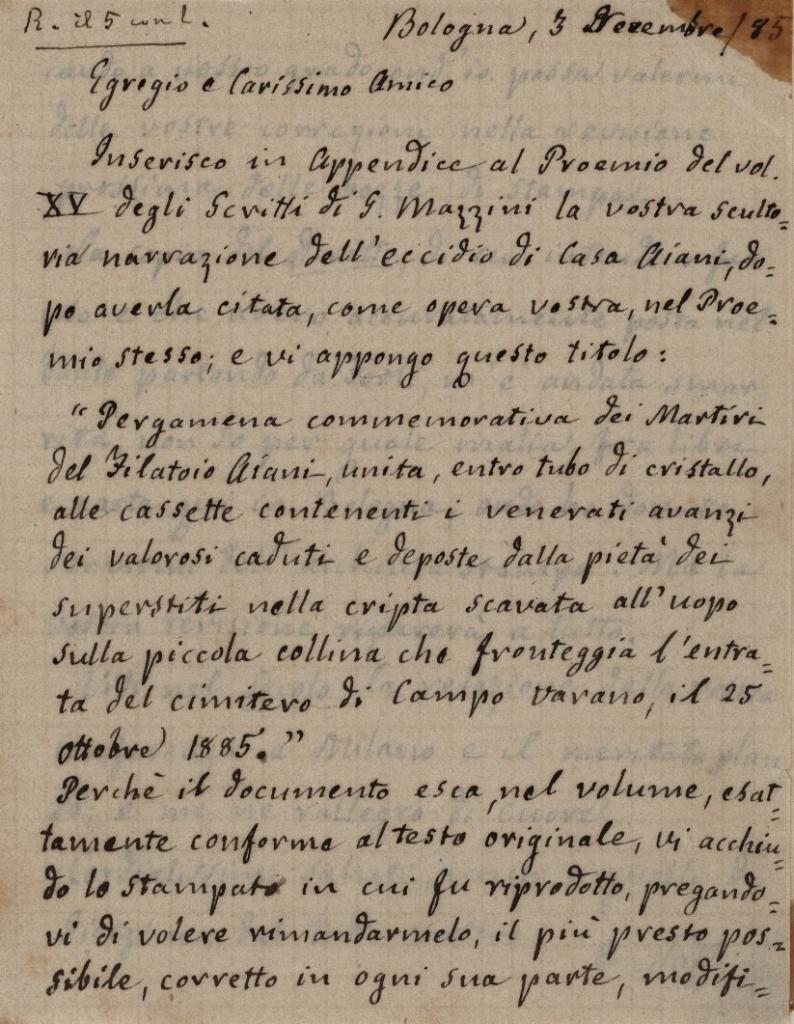 R. il 5 con l.
Bologna, 3 Decembre/85
Egregio e Carissimo Amico
Inserisco in Appendice al Proemio del vol.
XV degli Scritti di G. Mazzini la vostra sculto=
ria narrazione dell'eccidio di Casa Aiani, do=
po averla citata, come opera vostra, nel Proe=
mio stesso; e vi appongo questo titolo:
"Pergamena commemorativa dei Martiri
del Filatoio Aiani, unita, entro tubo di cristallo,
alle cassette contenenti i venerati avanzi
dei valorosi caduti e deposte dalla pietà dei
superstiti nella cripta scavata all'uopo
sulla piccola collina che fronteggia l'entra=
ta del cimitero di Campo Varano, il 25
ottobre 1885."
Perchè il documento esca, nel volume, esat=
tamente conforme al testo originale, vi acchiu=
do lo stampato in cui fu riprodotto, pregando=
vi di volere rimandarmelo, il più presto pos=
sibile, corretto in ogni sua parte, modifi=